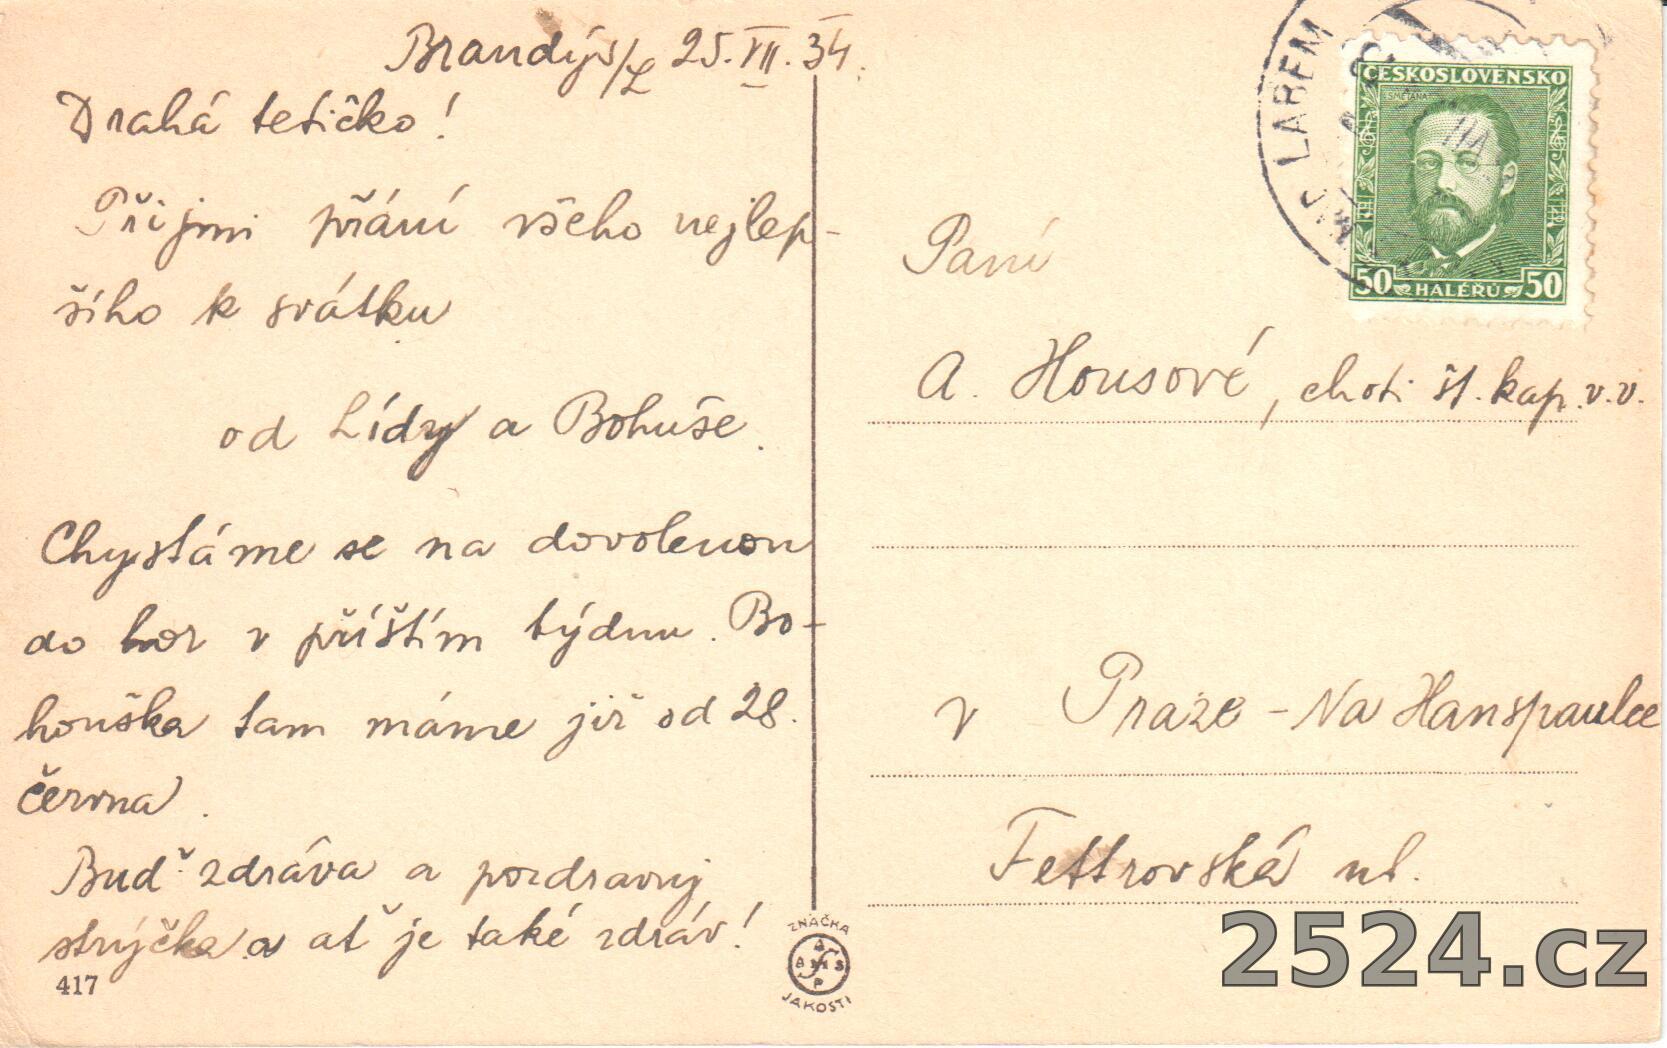 Brandýs/L 25.VII.34.
Drahá tetičko!
Přijmi přání všeho nejlep-
šího k svátku
od Lídy a Bohuše.
Chystáme se na dovolenou
do hor v příštím týdnu. Bo-
houška tam máme již od 28.
června.
Buď zdráva a pozdravuj
strýčka a ať je také zdráv!
417
ZNAČKA
JAKOSTI
LABEM
ČESKOSLOVENSKO
SMETANA
50 HALÉŘŮ 50
Paní
A. Housové, choti št. kap. v.v.
v Praze - Na Hanspaulce
Fettrovská ul.
2524.cz